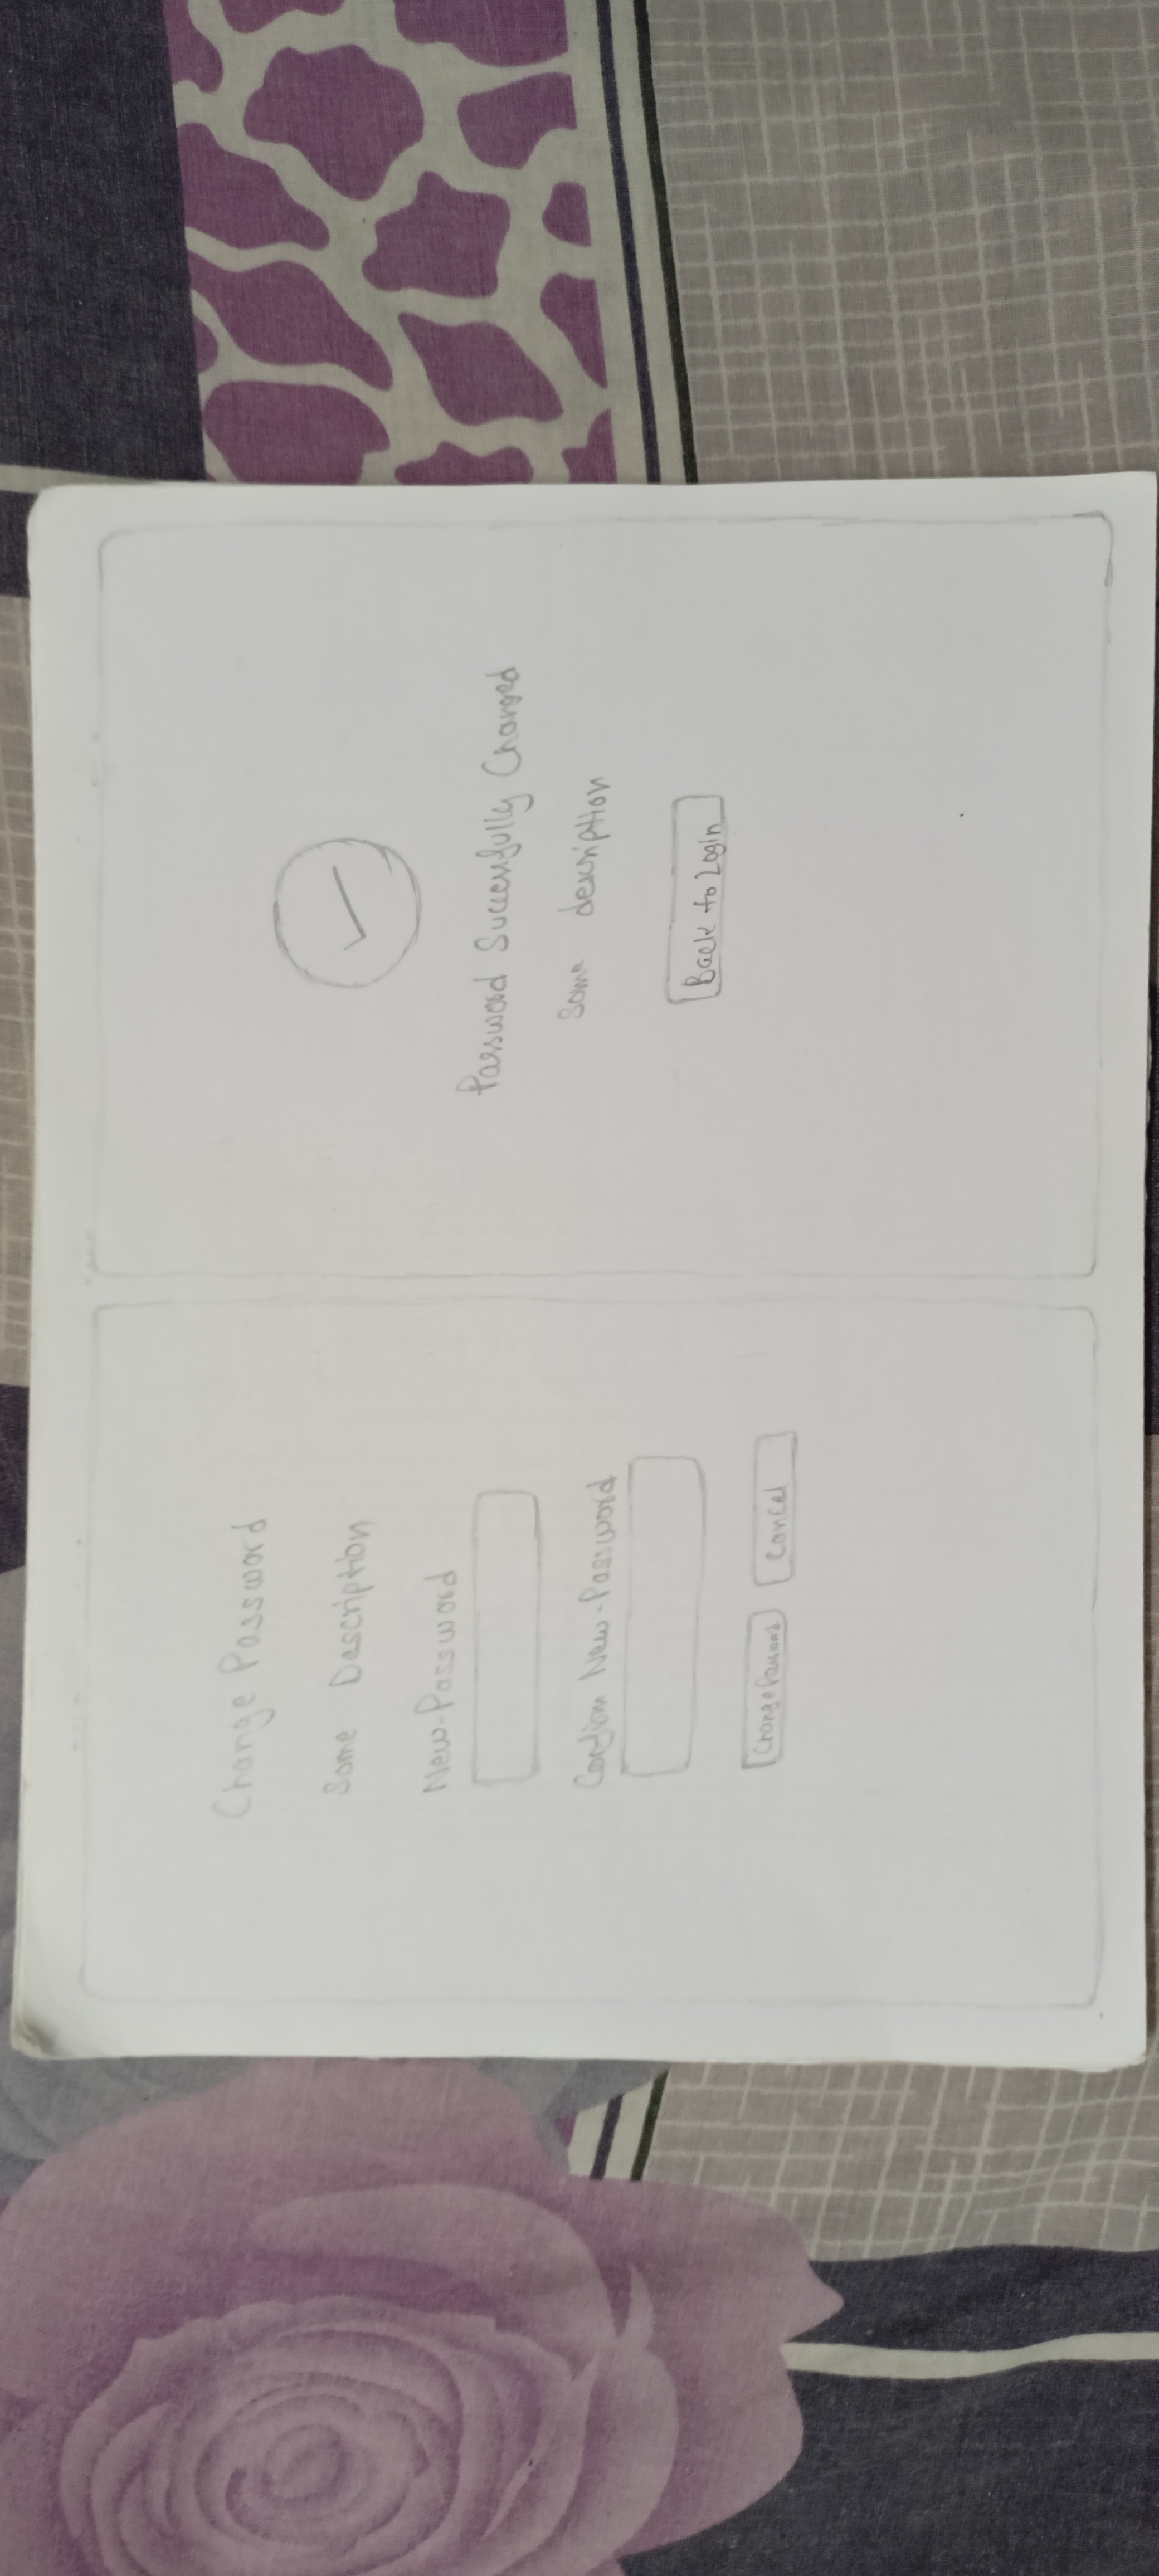 Change Password
Some Description
New-Password
Confirm New-Password
Change Password
Cancel
Password Successfully Changed
Some description
Back to Login